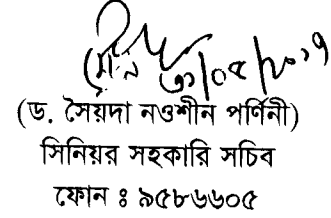 ৩/০৫/২০১৭
(ড. সৈয়দা নওশীন পর্ণিনী)
সিনিয়র সহকারি সচিব
ফোন ঃ ৯৫৮৬৬০৫